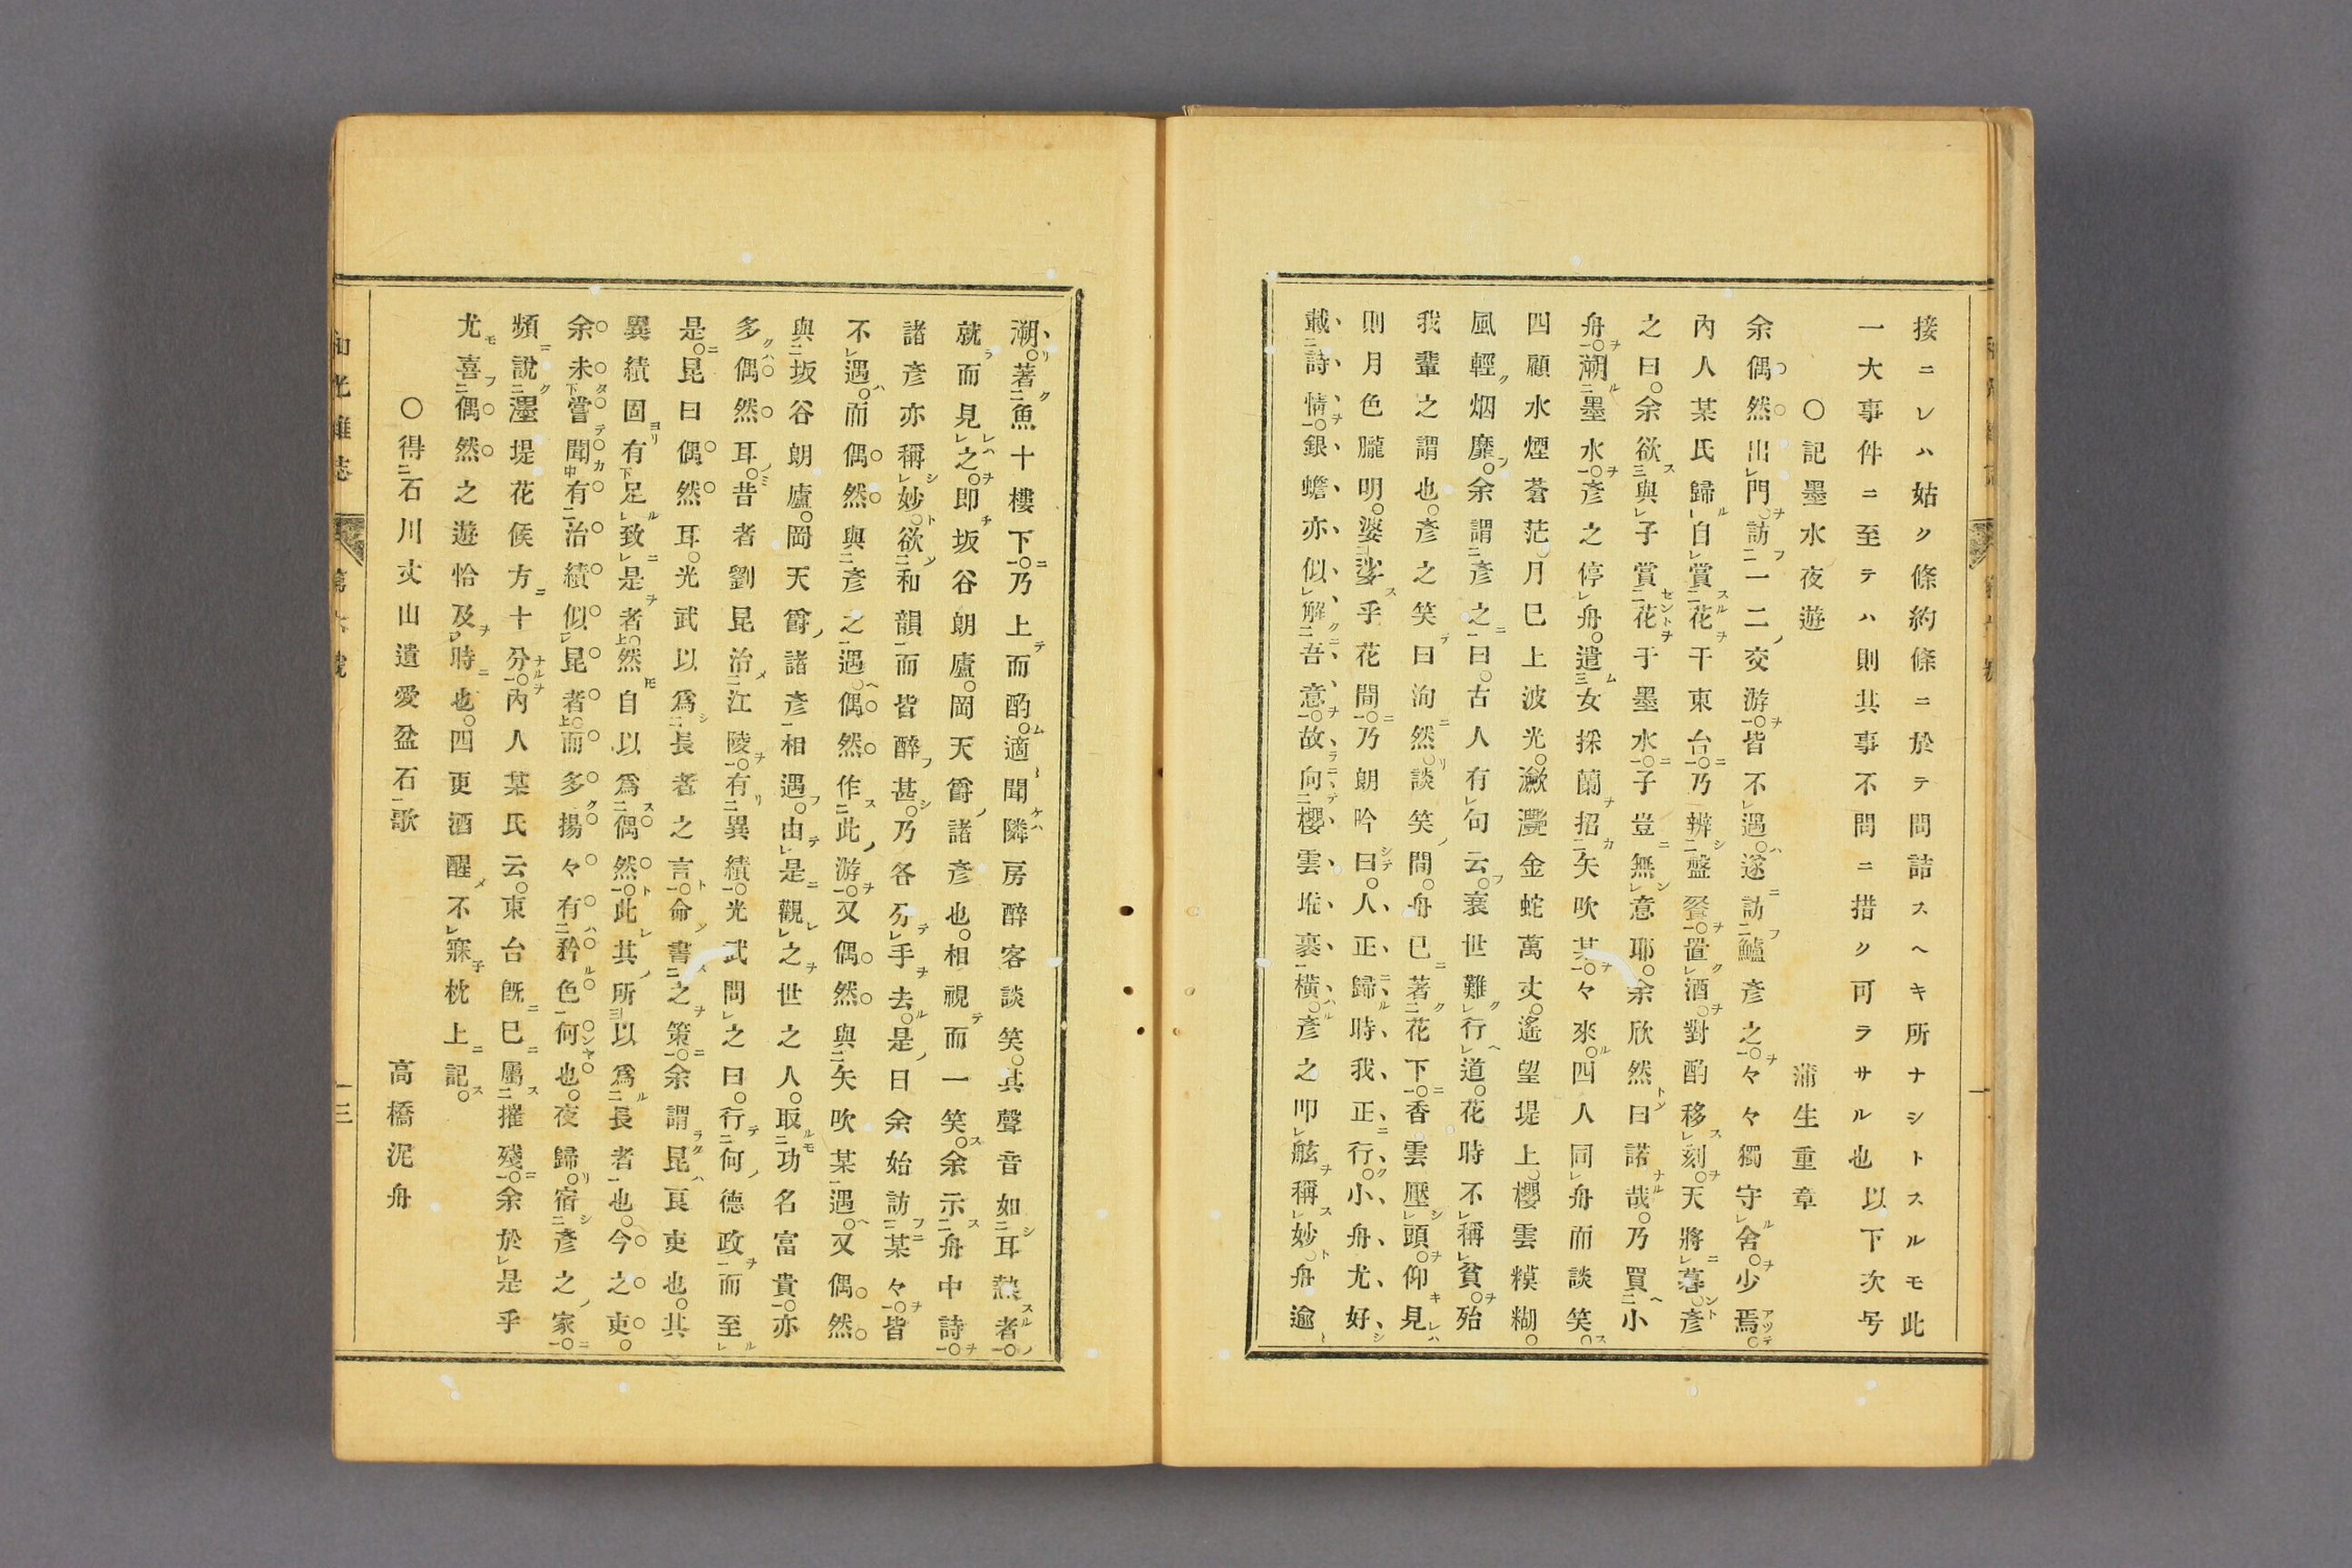 接ニレハ姑ク條約條ニ於テ問詰スヘキ所ナシトスルモ此
一大事件ニ至テハ則其事不問ニ措ク可ラサル也 以下次号
〇記墨水夜遊 蒲生重章
余偶然出門訪一二交游皆不遇遂訪鱸彥之々々獨守舍少焉
內人某氏歸自賞花于東台乃辨盤飱置酒對酌移刻天將暮彥
之曰余欲與子賞花于墨水子豈無意耶余欣然曰諾哉乃買小
舟溯墨水彥之停舟遣女採蘭招矢吹某々來四人同舟而談笑
四顧水煙蒼茫月已上波光瀲灔金蛇萬丈遙望堤上櫻雲糢糊
風輕烟靡余謂彥之曰古人有句云衰世難行道花時不稱貧殆
我輩之謂也彥之笑曰洵然談笑間舟已著花下香雲壓頭仰見
則月色朧明婆娑乎花間乃朗吟曰人正歸時我正行小舟尤好
載詩情銀蟾亦似解吾意故向櫻雲堆裏橫彥之叩舷稱妙舟逾
溯著魚十樓下乃上而酌適聞隣房醉客談笑其聲音如耳熟者
就而見之即坂谷朗廬岡天爵諸彥也相視而一笑余示舟中詩
諸彥亦稱妙欲和韻而皆醉甚乃各分手去是日余始訪某々皆
不遇而偶然與彥之遇偶然作此游又偶然與矢吹某遇又偶然
與坂谷朗廬岡天爵諸彥相遇由是觀之世之人取功名富貴亦
多偶然耳昔者劉昆治江陵有異績光武問之曰行何德政而至
是昆曰偶然耳光武以爲長者之言命書之策余謂昆良吏也其
異績固有足致是者然自以爲偶然此其所以爲長者也今之吏
余未嘗聞有治績似昆者而多揚々有矜色何也夜歸宿彥之家
頻說墨堤花候方十分內人某氏云東台旣已屬摧殘余於是乎
尤喜偶然之遊恰及時也四更酒醒不寐枕上記
〇得石川丈山遺愛盆石歌
高橋泥舟